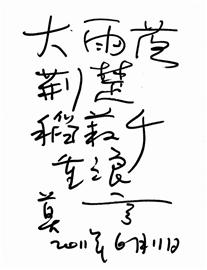 大雨落
荆楚
稻菽千
重浪
莫言
2011年6月11日